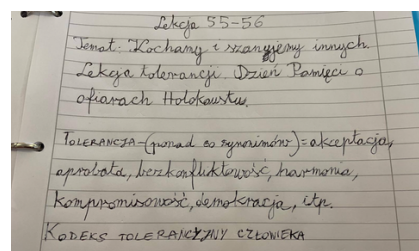 Lekcja 55-56
Temat: Kochamy i szanujemy innych.
Lekcja tolerancji. Dzień Pamięci o
ofiarach Holokaustu.
TOLERANCJA-(ponad 20 synonimów)=akceptacja,
aprobata, bezkonfliktowość, harmonia,
kompromisowość, demokracja, itp.
KODEKS TOLERANCYJNY CZŁOWIEKA